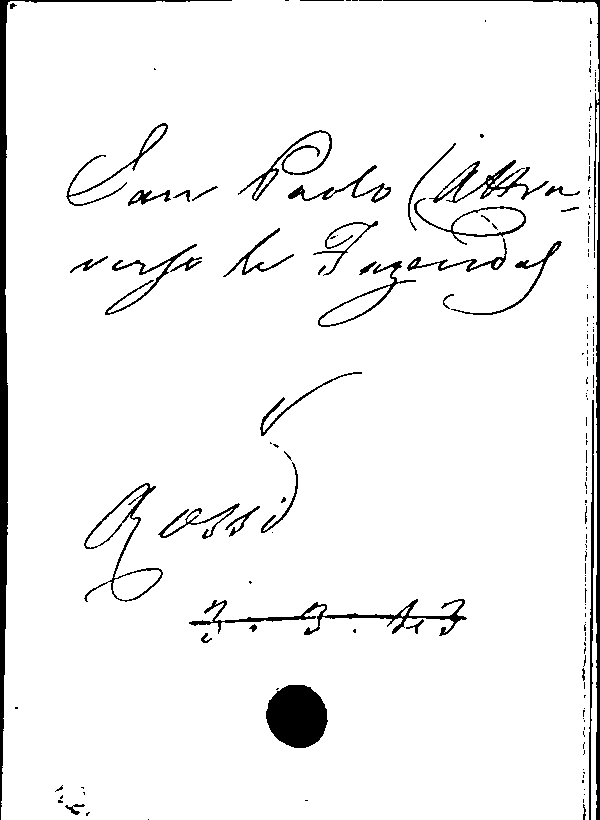 San Paolo (Attra-
verso le Fazendas
Rossi
3. 3. 43